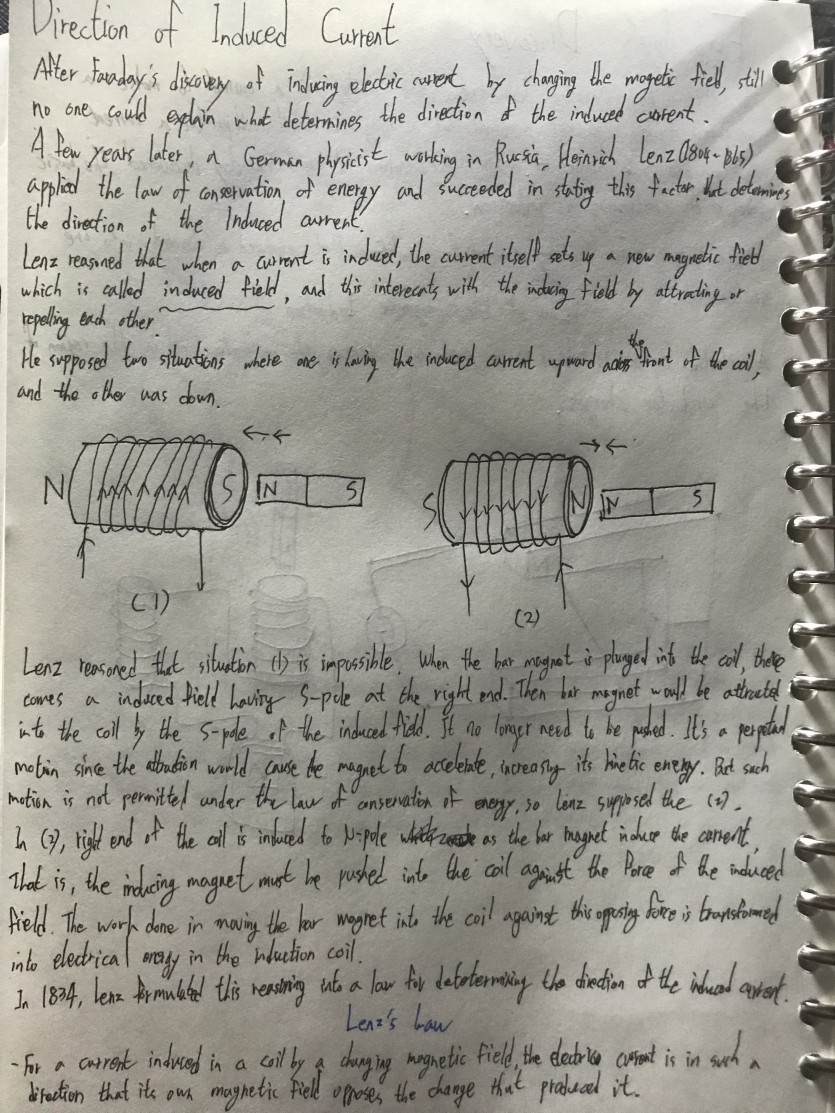 Direction of Induced Current
After Faraday's discovery of inducing electric current by changing the magetic field, still
no one could explain what determines the direction of the induced current.
A few years later, a German physicist working in Russia, Heinrich Lenz (1804~1865)
applied the law of conservation of energy and succeeded in stating this factor that determines
the direction of the Induced current.
Lenz reasoned that when a current is induced, the current itself sets up a new magnetic field
which is called induced field, and this interecats with the inducing field by attracting or
repelling each other.
He supposed two situations where one is having the induced current upward across the front of the coil,
and the other was down.
N S N S
S N N S
(1)
(2)
Lenz reasoned that situation (1) is impossible. When the bar magnet is plunged into the coil, there
comes a induced field having S-pole at the right end. Then bar magnet would be attracted
into the coil by the S-pole of the induced field. It no longer need to be pushed. It's a perpetual
motion since the attraction would cause the magnet to accelerate, increasing its kinetic energy. But such
motion is not permitted under the law of conservation of energy, so Lenz supposed the (2).
In (2), right end of the coil is induced to N-pole as the bar magnet induce the current,
That is, the inducing magnet must be pushed into the coil against the Force of the induced
field. The work done in moving the bar magnet into the coil against this opposing force is transformed
into electrical energy in the induction coil.
In 1834, Lenz formulated this reasoning into a law for detetermining the direction of the induced current.
Lenz's Law
- For a current induced in a coil by a changing magnetic field, the electric current is in such a
direction that its own magnetic field opposes the change that produced it.